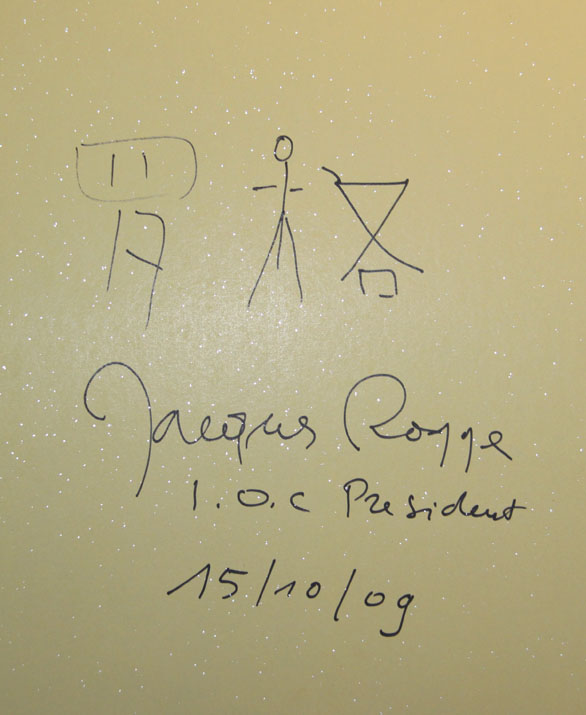 罗格
Jacques Rogge
I.O.C President
15/10/09